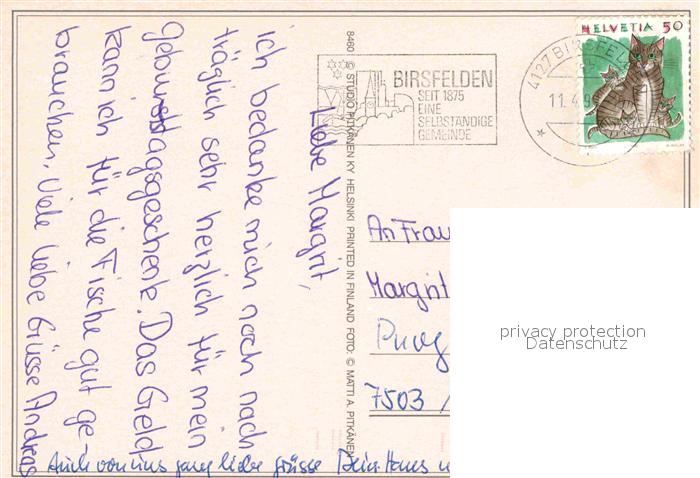 Liebe Margrit,
ich bedanke mich noch nach
träglich sehr herzlich für mein
Geburtstagsgeschenk. Das Geld
kann ich für die Fische gut ge-
brauchen. Viele liebe Grüsse Andreas
Auch von uns ganz liebe Grüsse Dein Hans
8460 © STUDIO PITKÄNEN KY HELSINKI PRINTED IN FINLAND FOTO: © MATTI A. PITKÄNEN
BIRSFELDEN
SEIT 1875
EINE
SELBSTÄNDIGE
GEMEINDE
4127 BIRSFELDEN
11.4.9
HELVETIA 50
An Frau
Margrit
7503
privacy protection
Datenschutz